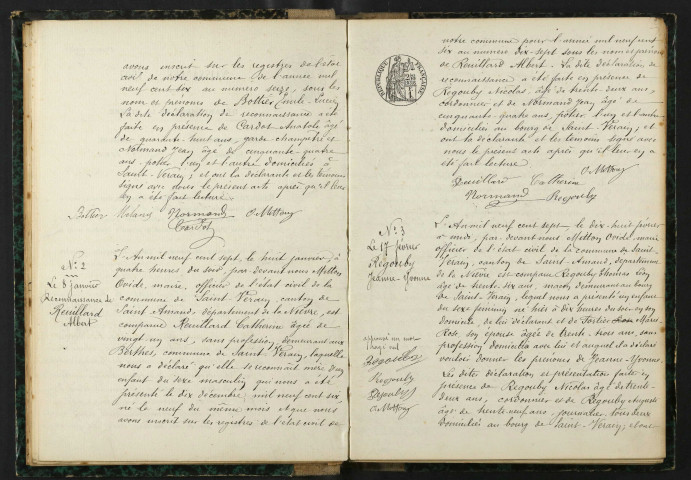 avons inscrit sur les registres de l'état
civil de notre commune de l'année mil
neuf cent six au numéro seize, sous les
nom et prénoms de Bottier Emile Lucien
La dite déclaration de reconnaissance a été
faite en présence de Cardot Anatole âgé
de quarante huit ans, garde champêtre et
Normand Jean âgé de cinquante quatre
ans potier l'un et l'autre domiciliés à
Saint-Verain; et ont la déclarante et les témoins
signé avec nous le présent acte après qu'il leur
en a été fait lecture.
Normand O. Metton
Cardot
N° 2
Le 8 janvier
Reconnaissance de
Reuillard
Albert
L'An mil neuf cent sept, le huit janvier à
quatre heures du soir, par devant nous Metton
Ovide, maire, officier de l'état civil de la
commune de Saint Verain canton de
Saint Amand, département de la Nièvre, est
comparue Reuillard Catherine âgée de
vingt un ans, sans profession, demeurant aux
Berthes, commune de Saint Verain, laquelle
nous a déclaré qu'elle se reconnait mère d'un
enfant du sexe masculin qui nous a été
présenté le dix décembre mil neuf cent six
né le neuf du même mois et que nous
avons inscrit sur les registres de l'état civil de
notre commune pour l'année mil neuf cent
six au numéro dix-sept sous les nom et prénom
de Reuillard Albert. La dite déclaration de
reconnaissance a été faite en présence de
Regouby Nicolas, âgé de trente deux ans,
cordonnier et de Normand Jean âgé de
cinquante quatre ans, potier l'un et l'autre
domiciliés au bourg de Saint-Verain; et
ont la déclarante et les témoins signé avec
nous le présent acte après qu'il leur en a
été fait lecture
O. Metton
Reuillard Catherine
Normand Regouby
RÉPUBLIQUE FRANÇAISE
N° 3
Le 17 février
Regouby
Jeanne-Yvonne
L'An mil neuf cent sept, le dix huit février
midi, par devant nous Metton Ovide, maire
officier de l'état civil de la commune de Saint
Verain, canton de Saint Amand, département
de la Nièvre est comparu Regouby Thomas
âgé de trente six ans, maçon, demeurant au bourg
de Saint Verain, lequel nous a présenté un enfant
du sexe féminin né hier à dix heures du soir en son
domicile, de lui déclarant et de Marie
Rose son épouse âgée de trente trois ans, sans
profession domiciliée avec lui et auquel il a déclaré
vouloir donner les prénoms de Jeanne-Yvonne.
Les dites déclaration et présentation faites en
présence de Regouby Nicolas âgé de trente
deux ans, cordonnier et de Regouby Auguste
âgé de trente neuf ans, journalier, tous deux
domiciliés au bourg de Saint-Verain; et ont
approuvé un mot
rayé nul
Regouby
Regouby
Regouby
O. Metton